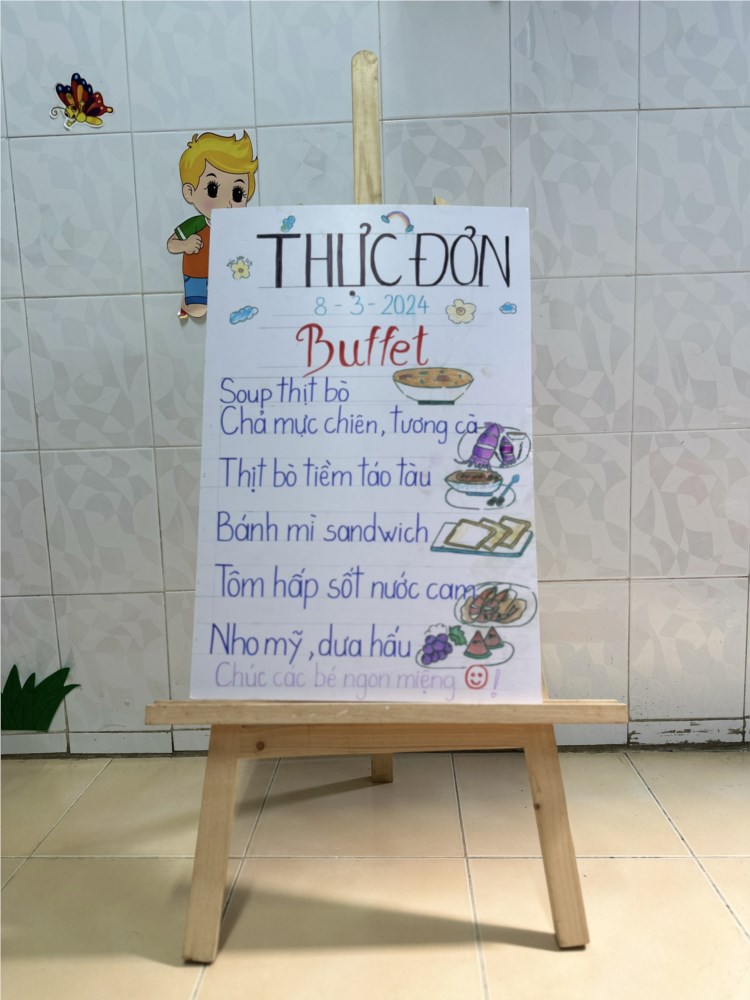 THỰC ĐƠN
8-3-2024
Buffet
Soup thịt bò
Chả mực chiên, tương cà
Thịt bò tiềm táo tàu
Bánh mì sandwich
Tôm hấp sốt nước cam
Nho mỹ, dưa hấu
Chúc các bé ngon miệng ☺!